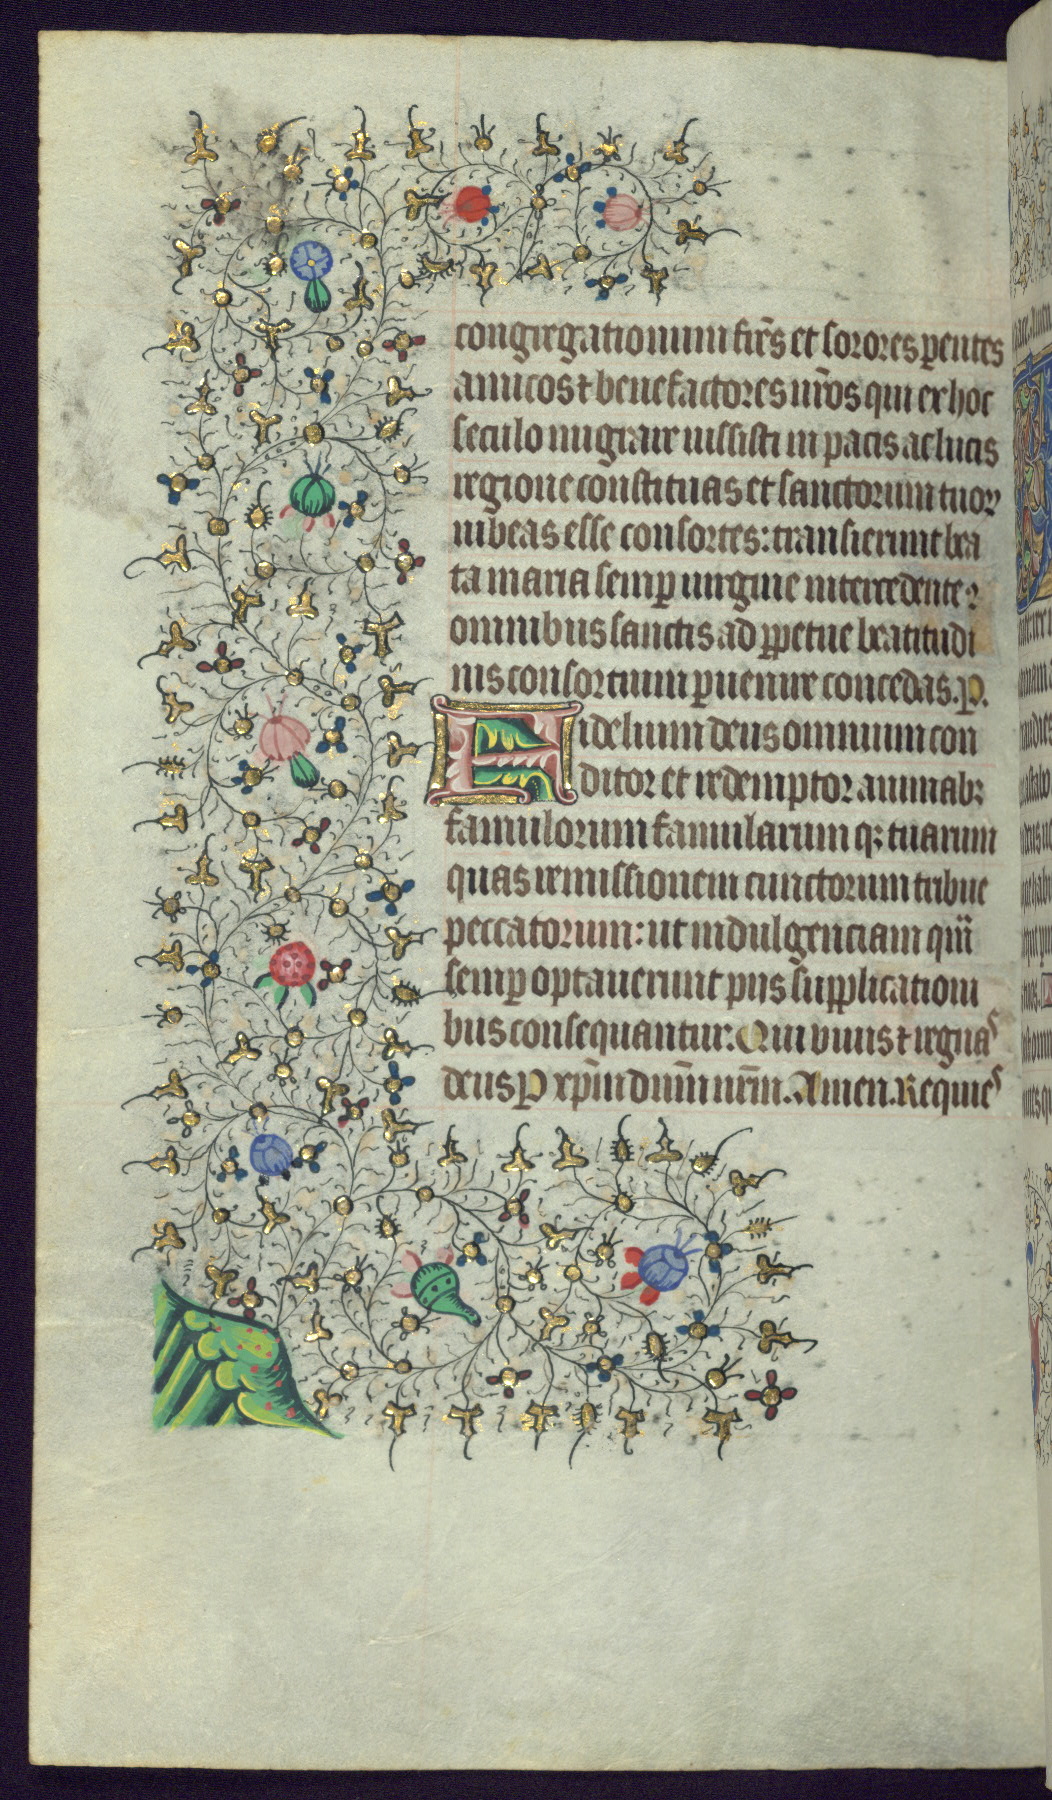 congregationum fr̄s et sorores ꝑentes
amicos ⁊ benefactores nr̄os qui ex hoc
seculo migrare iussisti in pacis ac lucis
regione constituas et sanctorum tuoꝝ
iubeas esse consortes: transierunt bea
ta maria semꝑ uirgine intercedente ⁊
omnibus sanctis ad ꝑpetue beatitudi
nis consortium ꝑuenire concedas. P.
Fidelium deus omnium con
ditor et redemptor animabꝫ
famulorum famularum qꝫ tuarum
quas remissionem cunctorum tribue
peccatorum: ut indulgenciam quā
semꝑ optauerunt pijs supplicationi
bus consequantur. Qui viuis ⁊ regnas
deus P xp̄m dn̄m nr̄m. Amen. Requies